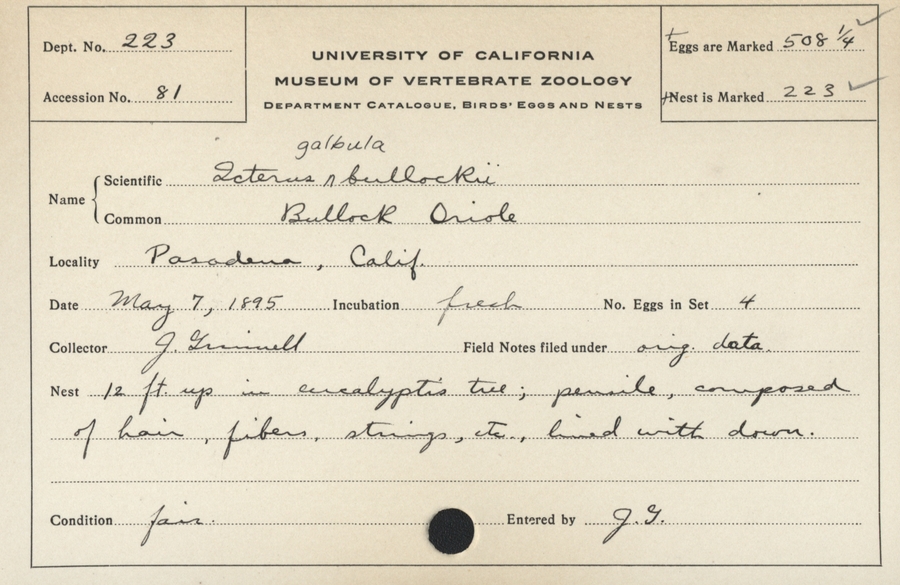 Dept. No. 223
Accession No. 81
UNIVERSITY OF CALIFORNIA
MUSEUM OF VERTEBRATE ZOOLOGY
DEPARTMENT CATALOGUE, BIRDS' EGGS AND NESTS
Eggs are Marked 508 1/4 ✓
Nest is Marked 223 ✓
galbula
Name { Scientific Icterus ^ bullockii
Common Bullock Oriole
Locality Pasadena, Calif.
Date May 7, 1895 Incubation fresh No. Eggs in Set 4
Collector J. Grinnell Field Notes filed under orig. data.
Nest 12 ft. up in eucalyptis tree; pensile, composed
of hair, fibers, strings, etc., lined with down.
Condition fair. Entered by J.G.